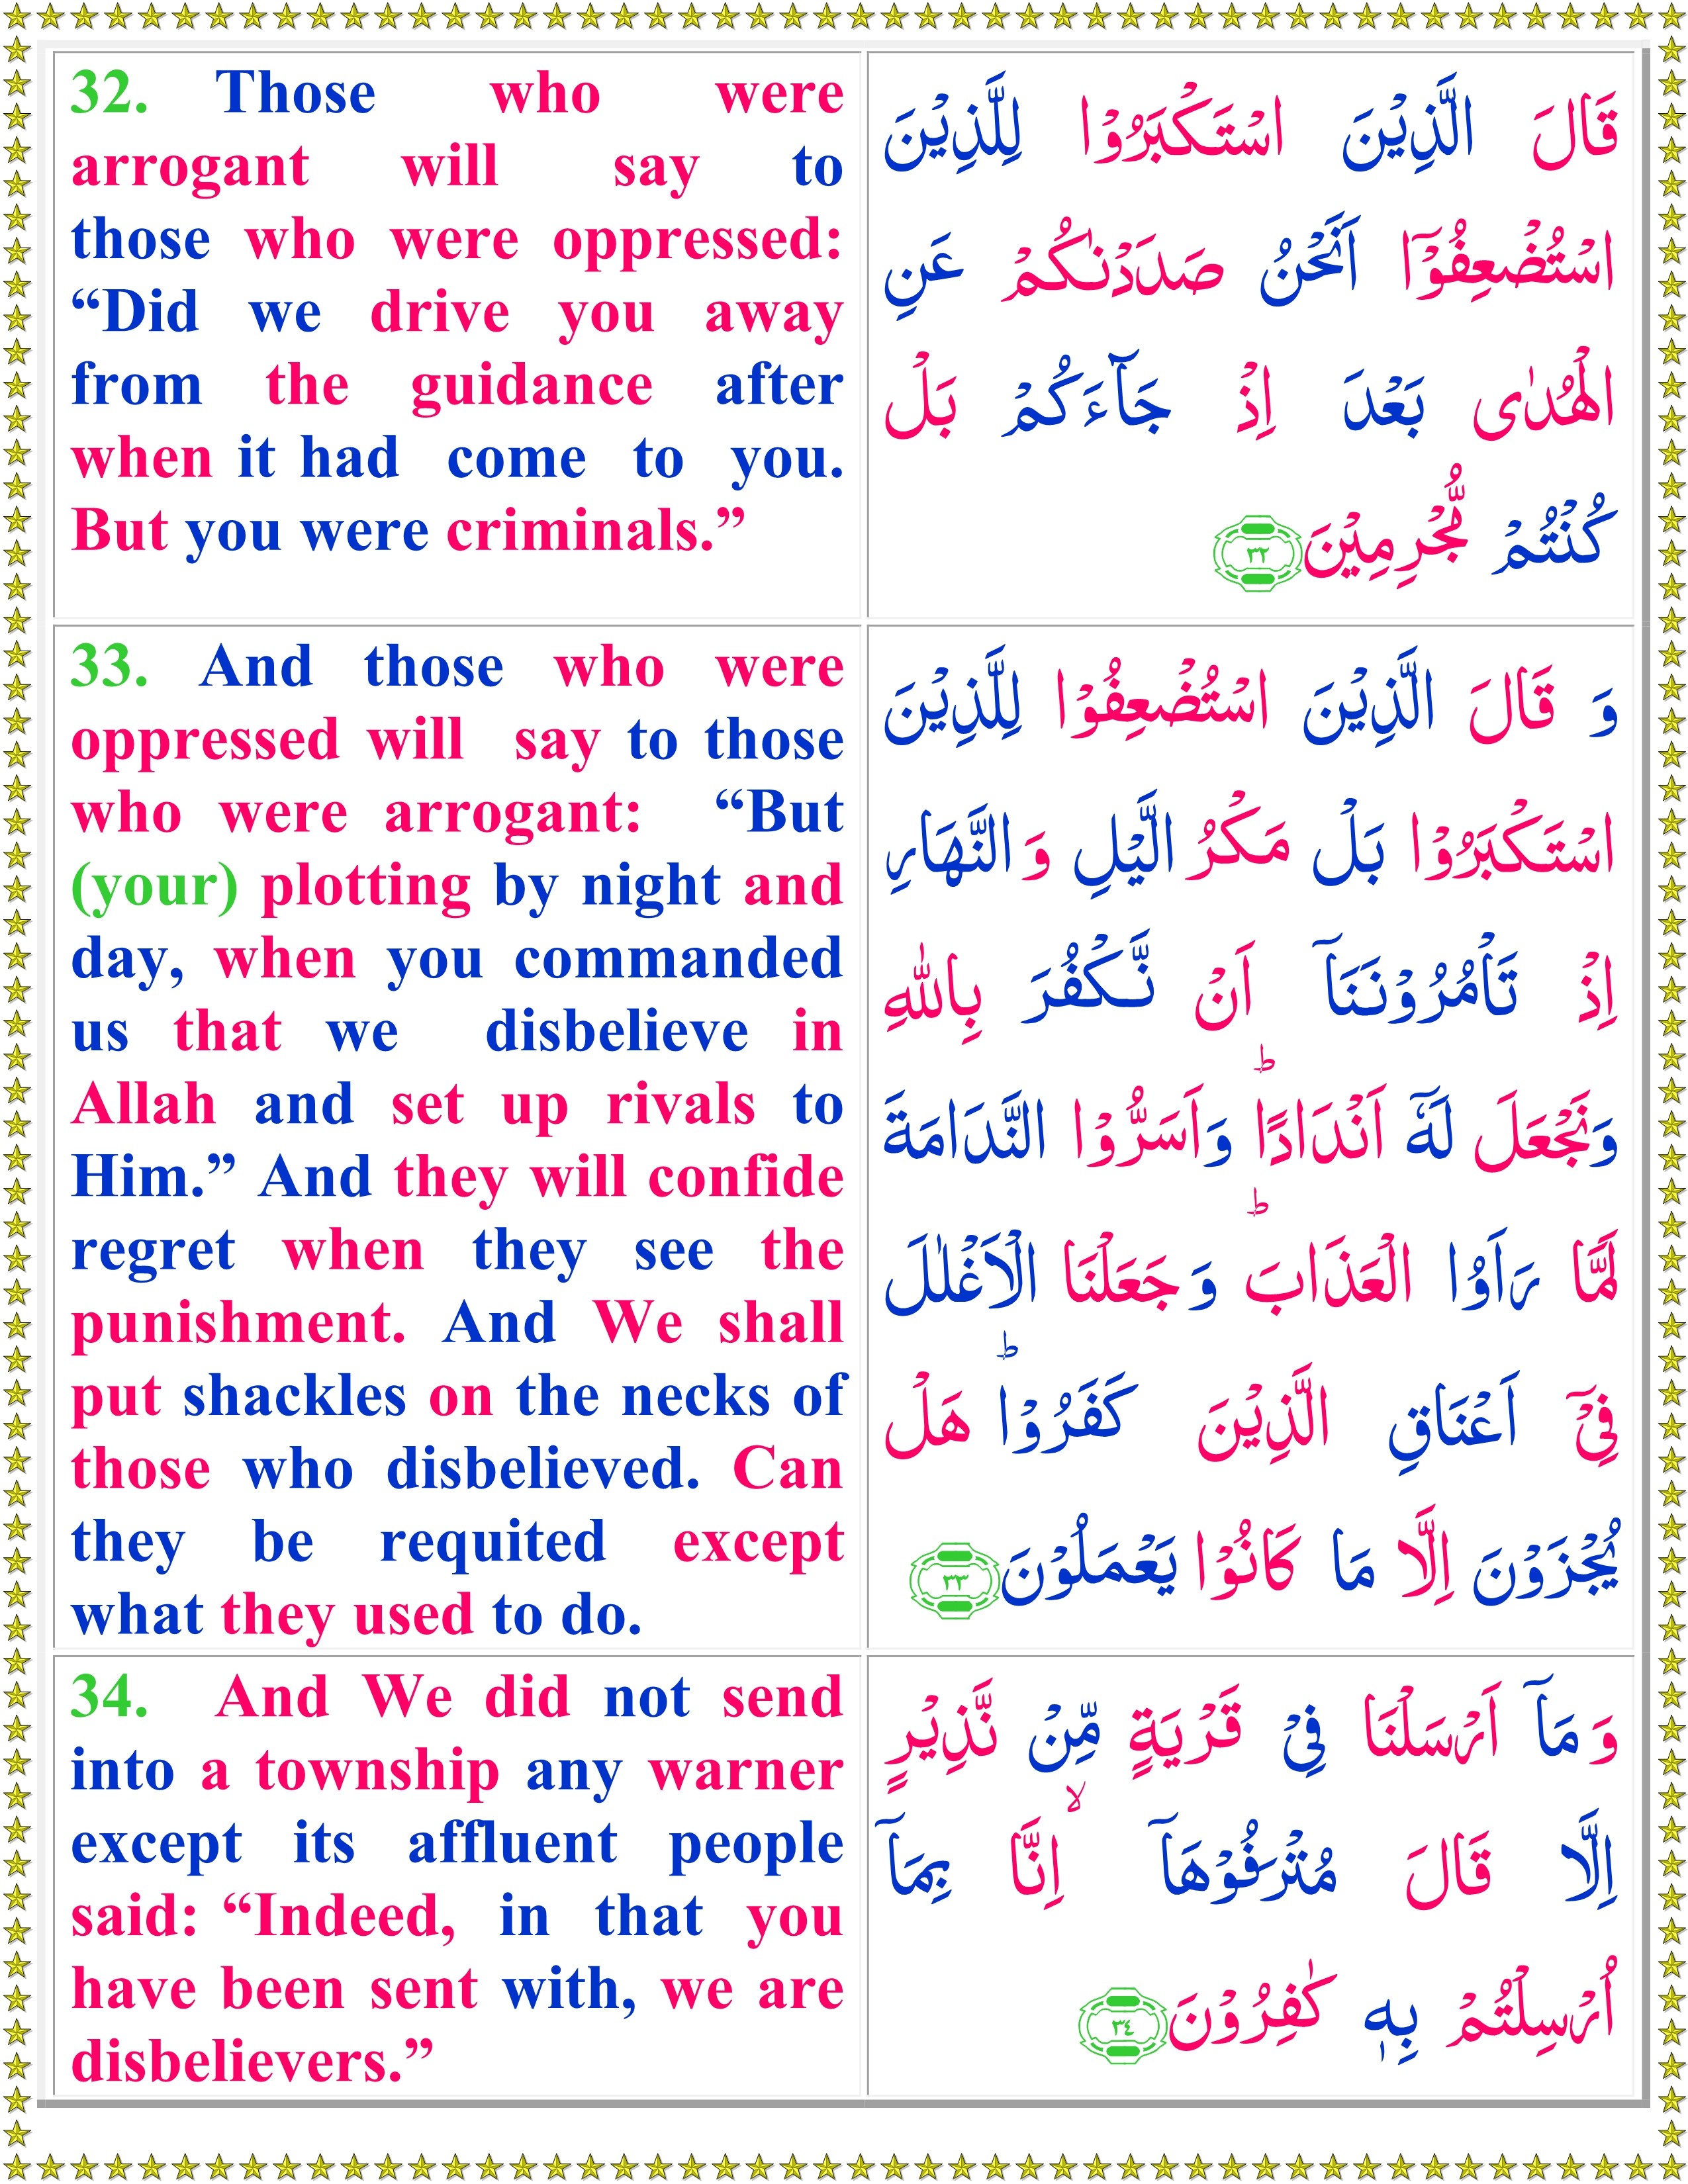 32. Those who were
arrogant will say to
those who were oppressed:
“Did we drive you away
from the guidance after
when it had come to you.
But you were criminals.”
قَالَ الَّذِيْنَ اسْتَكْبَرُوْا لِلَّذِيْنَ
اسْتُضْعِفُوْۤا اَنَحْنُ صَدَدْنٰكُمْ عَنِ
الْهُدٰى بَعْدَ اِذْ جَآءَكُمْ بَلْ
كُنْتُمْ مُّجْرِمِيْنَ ٣٢
33. And those who were
oppressed will say to those
who were arrogant: “But
(your) plotting by night and
day, when you commanded
us that we disbelieve in
Allah and set up rivals to
Him.” And they will confide
regret when they see the
punishment. And We shall
put shackles on the necks of
those who disbelieved. Can
they be requited except
what they used to do.
وَ قَالَ الَّذِيْنَ اسْتُضْعِفُوْا لِلَّذِيْنَ
اسْتَكْبَرُوْا بَلْ مَكْرُ الَّيْلِ وَ النَّهَارِ
اِذْ تَاْمُرُوْنَنَاۤ اَنْ نَّكْفُرَ بِاللّٰهِ
وَنَجْعَلَ لَهٗۤ اَنْدَادًا ؕ وَاَسَرُّوا النَّدَامَةَ
لَمَّا رَاَوُا الْعَذَابَ ؕ وَ جَعَلْنَا الْاَغْلٰلَ
فِيْۤ اَعْنَاقِ الَّذِيْنَ كَفَرُوْا ؕ هَلْ
يُجْزَوْنَ اِلَّا مَا كَانُوْا يَعْمَلُوْنَ ٣٣
34. And We did not send
into a township any warner
except its affluent people
said: “Indeed, in that you
have been sent with, we are
disbelievers.”
وَ مَاۤ اَرْسَلْنَا فِيْ قَرْيَةٍ مِّنْ نَّذِيْرٍ
اِلَّا قَالَ مُتْرَفُوْهَاۤ ۙ اِنَّا بِمَاۤ
اُرْسِلْتُمْ بِهٖ كٰفِرُوْنَ ٣٤